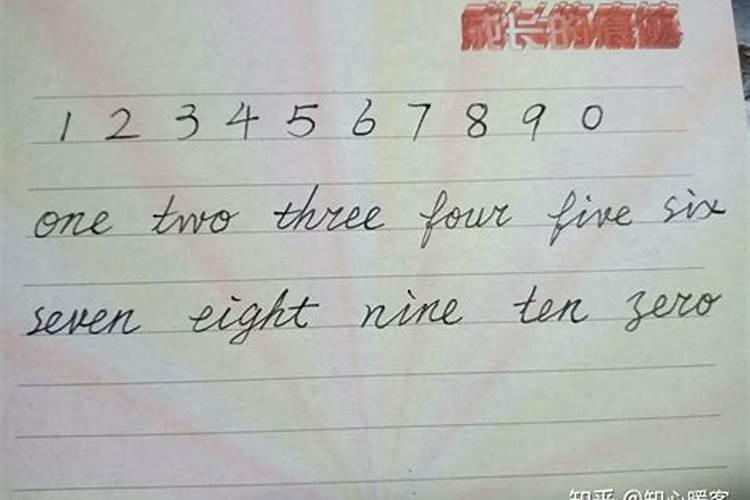 成长的痕迹
1 2 3 4 5 6 7 8 9 0
one two three four five six
seven eight nine ten zero
知乎 @知心暖客